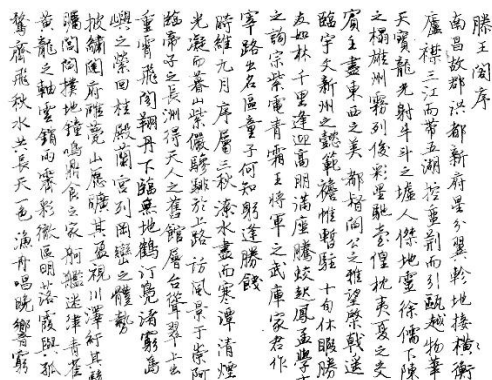 滕王阁序
南昌故郡洪都新府星分翼軫地接横衡
廬襟三江而帶五湖控蠻荆而引甌越物華
天寶龍光射牛斗之墟人傑地靈徐儒下陳
之榻雄州霧列俊彩星馳臺隍枕夷夏之交
賓主盡東西之美都督閻公之雅望棨戟遥
臨宇文新州之懿範襜帷暫駐十旬休暇勝
友如林千里逢迎高朋滿座騰蛟起鳳孟學士
之詞宗紫電青霜王將軍之武庫家君作
宰路出名區童子何知躬逢勝餞
時維九月序屬三秋潦水盡而寒潭清煙
光凝而暮山紫儼驂騑於上路訪風景于崇阿
臨帝子之長洲得天人之舊館層台聳翠上出
重霄飛閣翔丹下臨無地鶴汀鳧渚窮島
嶼之縈回桂殿蘭宮列岡巒之體勢
披繡闥俯雕甍山應曠其盈視川澤紆其駭
矚閭閻撲地鐘鳴鼎食之家舸艦迷津青雀
黄龍之軸雲銷雨霽彩徹區明落霞與孤
鶩齊飛秋水共長天一色漁舟唱晚響窮